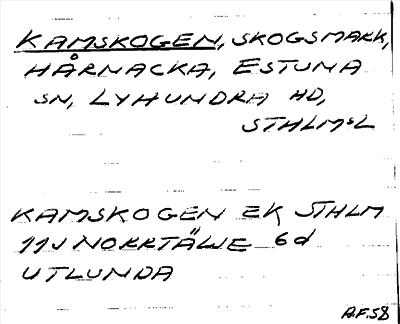 KAMSKOGEN, SKOGSMARK,
HÅRNACKA, ESTUNA
SN, LYHUNDRA HD,
STHLMS L
KAMSKOGEN EK STHLM
11J NORRTÄLJE 6d
UTLUNDA
A.F. 58